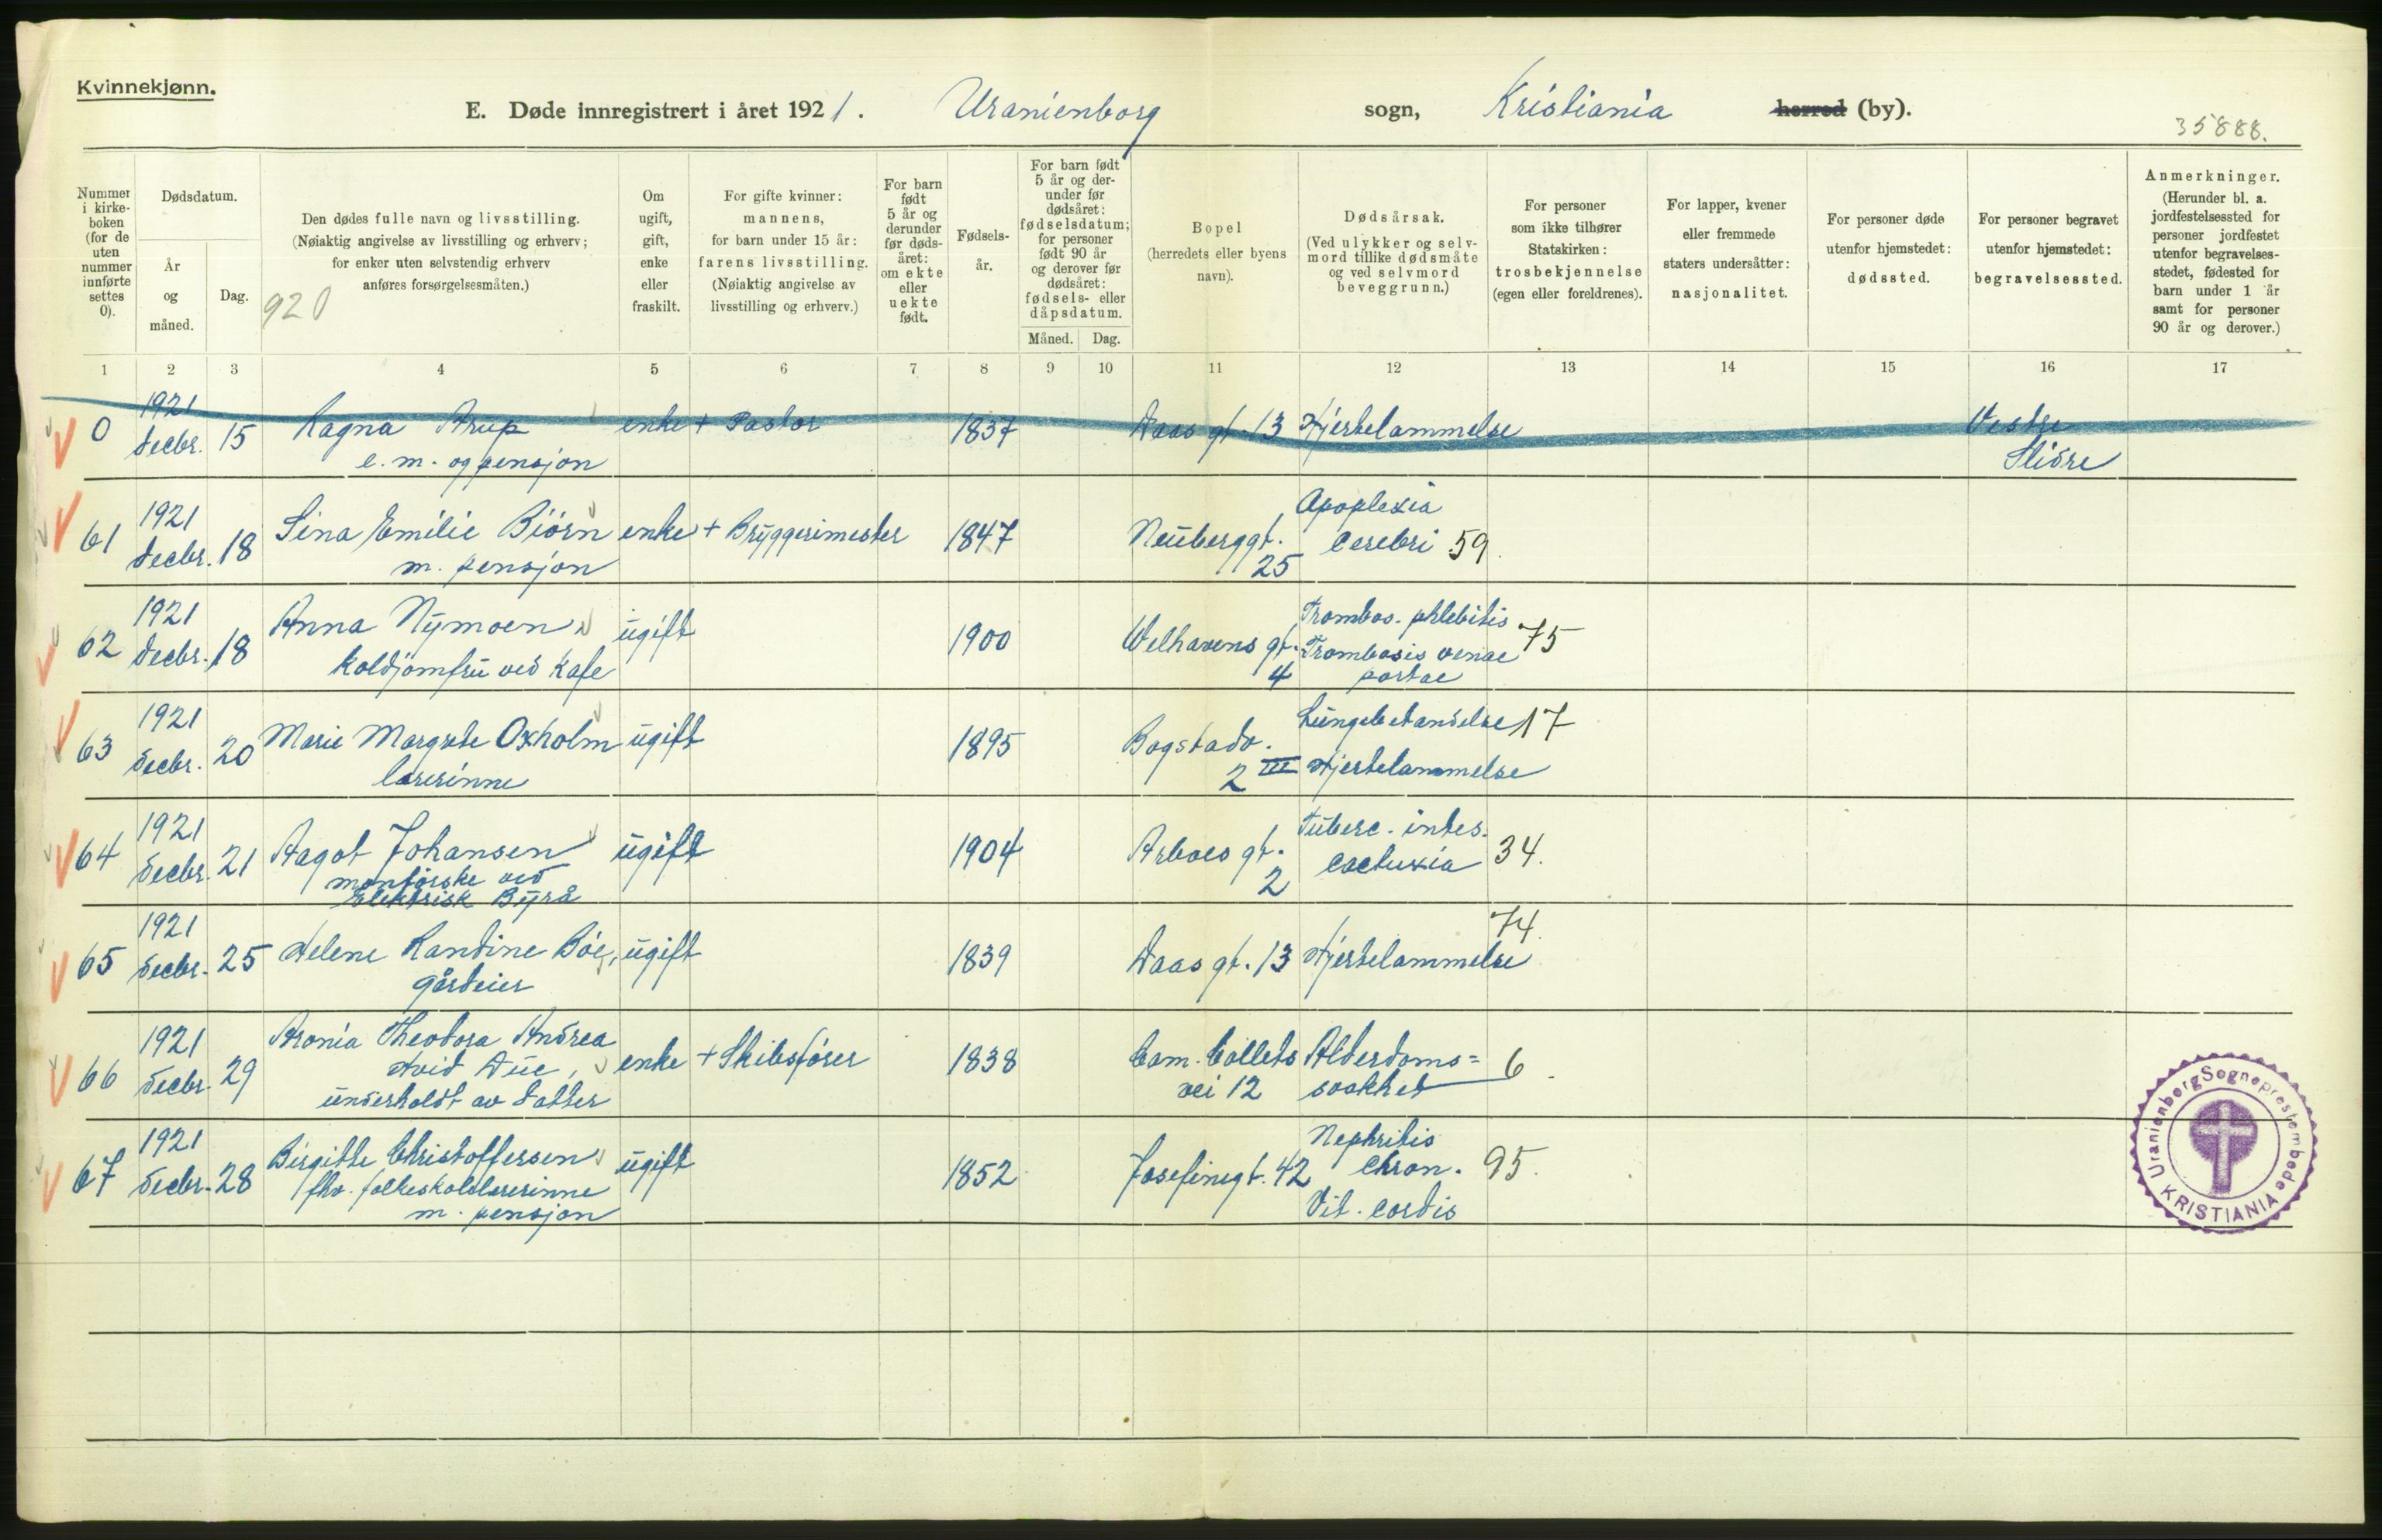 Kvinnekjønn.
E. Døde innregistrert i året 1921. Uranienborg sogn, Kristiania herred (by).
35888.
Nummer i kirke-boken (for de uten nummer innførte settes 0).
Dødsdatum.
År og måned.
Dag.
920
Den dødes fulle navn og livsstilling.
(Nøiaktig angivelse av livsstilling og erhverv;
for enker uten selvstendig erhverv
anføres forsørgelsesmåten.)
Om ugift, gift, enke eller fraskilt.
For gifte kvinner:
mannens,
for barn under 15 år:
farens livsstilling.
(Nøiaktig angivelse av
livsstilling og erhverv.)
For barn født 5 år og derunder før døds-året: om ekte eller uekte født.
Fødsels-år.
For barn født 5 år og der-under før dødsåret: fødselsdatum; for personer født 90 år og derover før dødsåret: fødsels- eller dåpsdatum.
Måned. Dag.
Bopel
(herredets eller byens
navn).
Dødsårsak.
(Ved ulykker og selv-
mord tillike dødsmåte
og ved selvmord
beveggrunn.)
For personer
som ikke tilhører
Statskirken:
trosbekjennelse
(egen eller foreldrenes).
For lapper, kvener
eller fremmede
staters undersåtter:
nasjonalitet.
For personer døde
utenfor hjemstedet:
dødssted.
For personer begravet
utenfor hjemstedet:
begravelsessted.
Anmerkninger.
(Herunder bl. a.
jordfestelsessted for
personer jordfestet
utenfor begravelses-
stedet, fødested for
barn under 1 år
samt for personer
90 år og derover.)
1 2 3 4 5 6 7 8 9 10 11 12 13 14 15 16 17
0 1921 decbr. 15 Ragna Arup enke + Pastor 1837 Daas gt. 13 Hjertelammelse Vestre
e. m. og pensjon Slidre
61 1921 decbr. 18 Sina Emilie Biørn enke + Bryggerimester 1847 Neuberggt. 25 Apoplexia cerebri 59.
m. pensjon
62 1921 decbr. 18 Anna Nymoen ugift 1900 Welhavens gt. 4 Trombos. phlebitis Trombosis venae portae 75
koldjomfru ved kafe
63 1921 decbr. 20 Marie Margrete Oxholm ugift 1895 Bogstadv. 2 III Lungebetændelse 17 Hjertelammelse
lærerinne
64 1921 decbr. 21 Aagot Johansen ugift 1904 Arboes gt. 2 Tuberc. intes. cachexia 34.
montørske ved
Elektrisk Byrå
65 1921 decbr. 25 Helene Randine Bøe, ugift 1839 Daas gt. 13 Hjertelammelse 74.
gårdeier
66 1921 decbr. 29 Aronia Theodora Andrea enke + Skibsfører 1838 Cam. Colletts vei 12 Alderdoms= svakhet 6.
Hvid Due,
underholdt av datter
67 1921 decbr. 28 Birgitte Christoffersen ugift 1852 Josefinegt. 42 Nephritis chron. Vit. cordis 95.
fhv. folkeskolelærerinne
m. pensjon
Uranienborg Sogneprestembede
KRISTIANIA